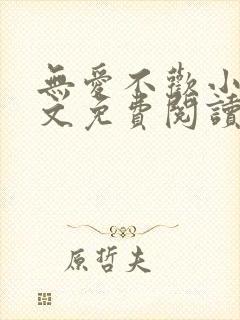 無愛不歡小
文免費閱讀
原哲夫